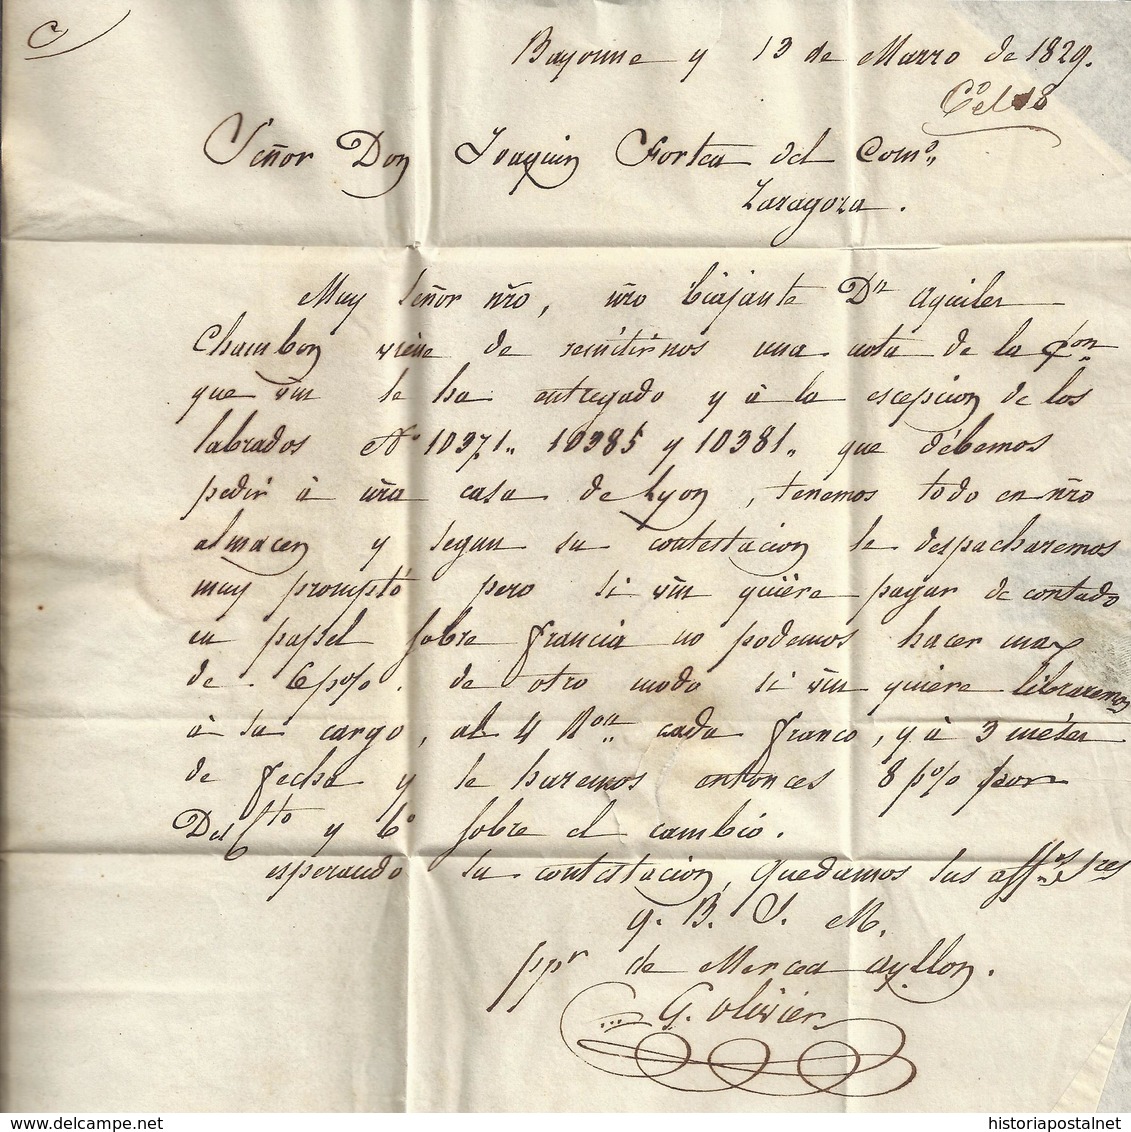 C
Bayonne y 13 de Marzo de 1829.
Cº el 18
Señor Don Joaquin Fortea del Comº,,
Zaragoza.
Muy señor nr̃o, nr̃o biajante Dn Aguiler
Chambon viene de remitirnos una nota de la
que vm̃ le ha entregado y à la escepcion de los
labrados Nº 10371,, 10385 y 10381,, que débemos
pedir à nr̃a casa de Lyon, tenemos todo en nr̃o
almacen y segun su contestacion le despacharemos
muy promptó pero si vm̃ quiére pagar de contado
en papel sobre francia no podemos hacer mas
de 6 p%. de otro modo si vm̃ quiére libraremos
à su cargo, al 4 Ron cada franco, y à 3 méses
de fecha y le haremos entonces 8 pº% por
Desto y bº sobre el cambió.
esperando su contestacion, quedamos sus affos Sres
q. B. S. M.
ppr de Mercea Ayllon.
G. Olivier
historiapostalnet